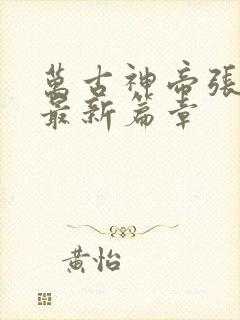 萬古神帝張
最新篇章
黃怡